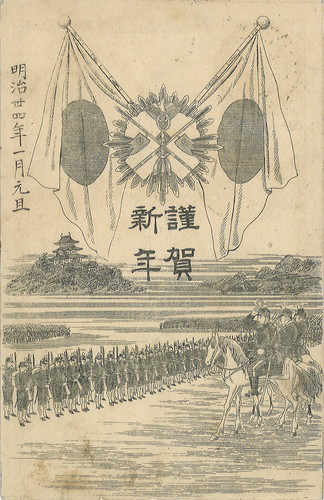 明治廿四年一月元旦
謹賀
新年